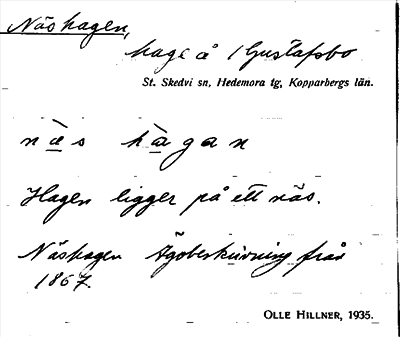 Näshagen,
hage å 1 Gustafsbo
St. Skedvi sn, Hedemora tg, Kopparbergs län.
nä̀s hàgan
Hagen ligger på ett näs.
Näshagen Ägobeskrivning från
1867.
OLLE HILLNER, 1935.